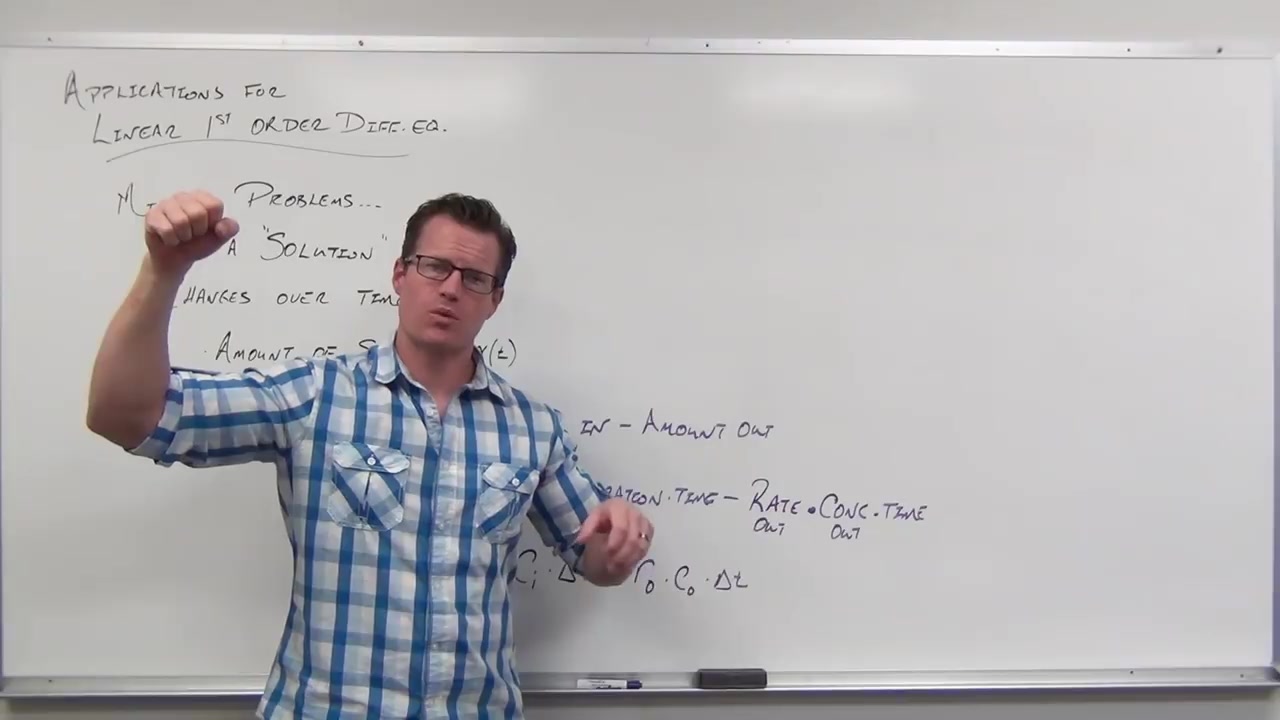 APPLICATIONS FOR
LINEAR 1ST ORDER DIFF. EQ.
PROBLEMS...
A "SOLUTION"
CHANGES OVER TIME
· AMOUNT OF X(t)
IN - AMOUNT OUT
· TIME - RATE · CONC · TIME
OUT OUT
Ci · Δ r₀ · C₀ · Δt